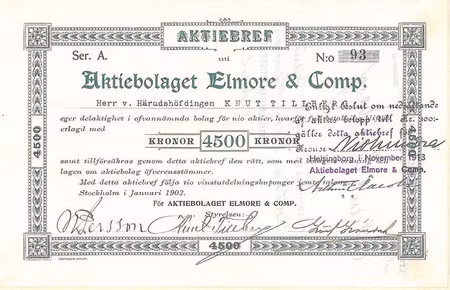 AKTIEBREF
Ser. A.
uti
N:o 93
Aktiebolaget Elmore & Comp.
Herr v. Häradshöfdingen KNUT TILLBERG
eger delaktighet i ofvannämnda bolag för nio aktier,
erlagd med
KRONOR 4500 KRONOR
samt tillförsäkras genom detta aktiebref den rätt, som med
lagen om aktiebolag öfverensstämmer.
Med detta aktiebref följa tio vinstutdelningskuponger jemte talong.
Stockholm i Januari 1902.
För AKTIEBOLAGET ELMORE & COMP.
Styrelsen:
Enligt beslut om nedsättande
af aktiens belopp till Kr.
gäller detta aktiebref
Kronor Niohundra
Helsingborg i November 1913
Aktiebolaget Elmore & Comp.
Persson
Knut Tillberg
4500
4500
4500